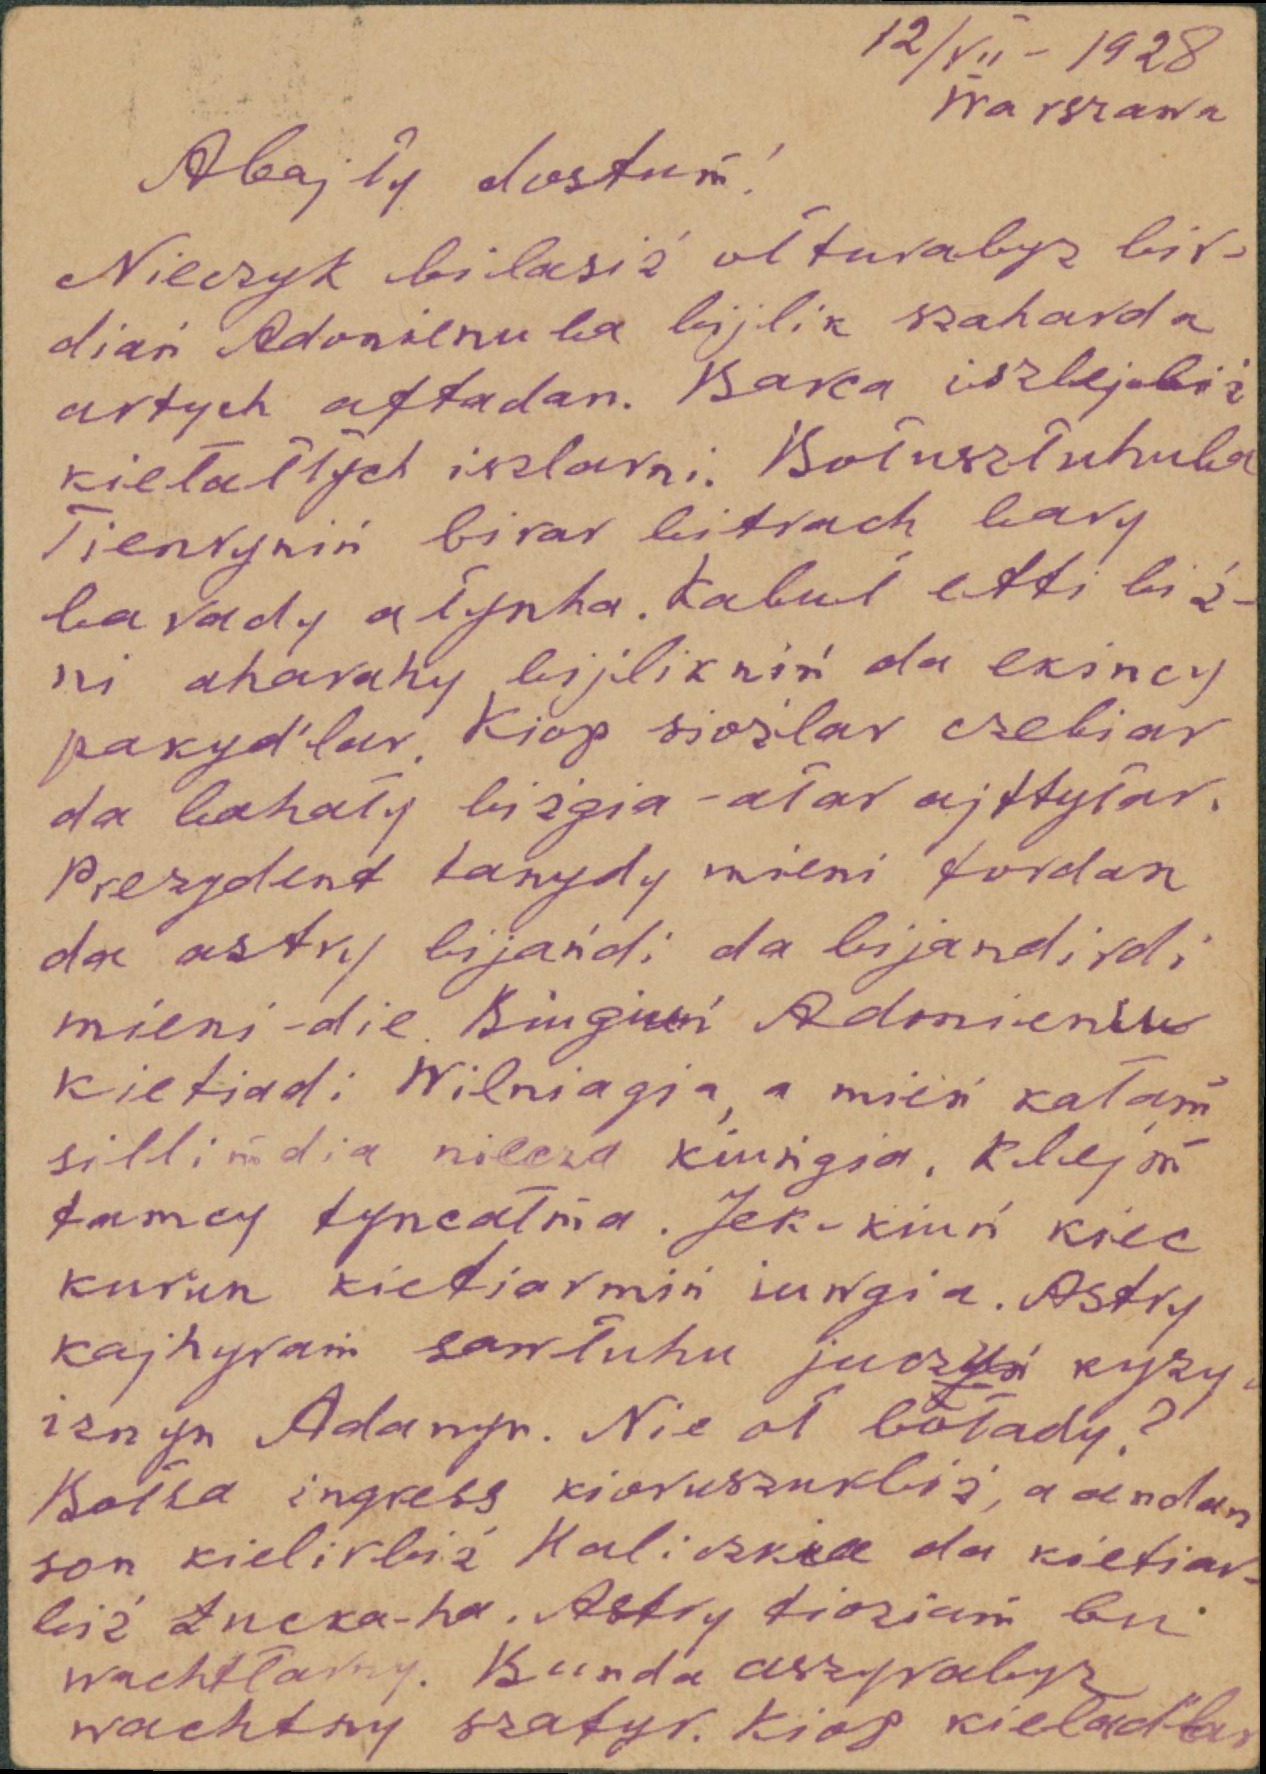 12/VII - 1928
Warszawa
Abajły dostum!
Nieczyk biłasiź ołturabyz bir-
diań Adonienuba bijlik szaharda
artych aftadan. Barca iszlejbiź
kiełałłych iszlarni. Bołuszłuhuba
Tienrynin birar bitrach bary
barady ałynha. Kabuł etti biź-
ni aharahy bijliknin da ekincy
pakyd'lar. Kiop sioźlar czebiar
da bahały biźgia - ałar ajttyłar.
Prezydent tanydy mieni tordan
da astry bijańdi da bijandirdi
mieni-die. Biugiuń Adonienu
kietiadi Wilniagia, a mień kałam
sillimdia niecza kiuńgia. Klejm
tamcy tyncałma. Jek-kiuń kiec
kurun kietiarmiń iuwgia. Astry
kajhyram sawłuhu juczuń kyzy-
iznyn Adanyn. Nie oł bołady?
Bołsa ingress kioruszurbiź, a andan
son kielirbiź Haliczkia da kietiar-
biź Łucka-ha. Astry tioziam bu
wachtłarny. Bunda aszyrabyz
wachtny szatyr. Kiop kieład'lar